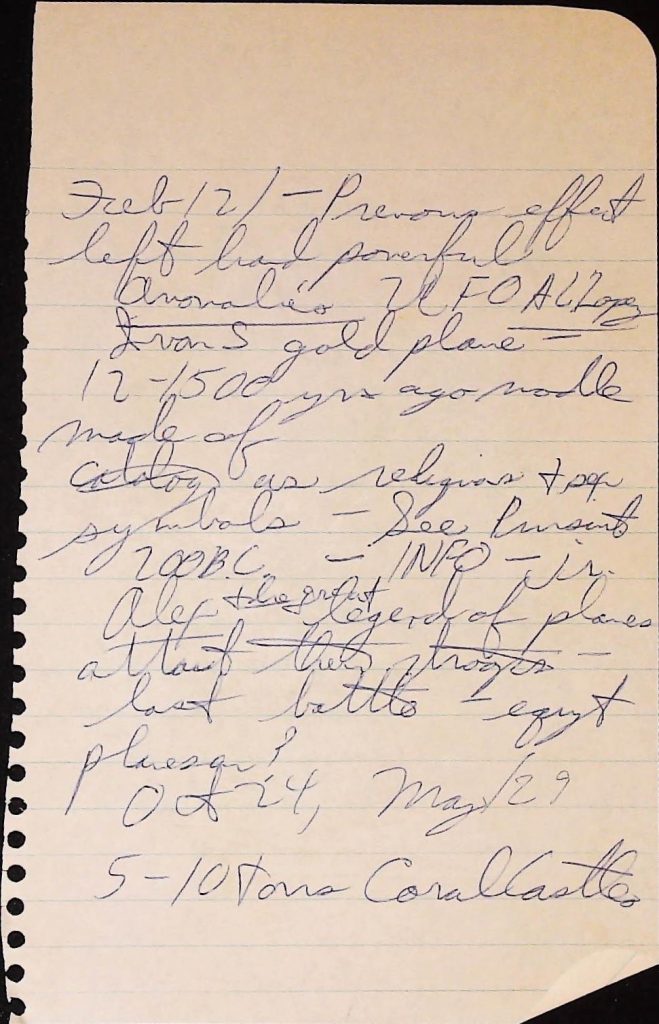 Feb 12/ - Prevous effect
left hand powerful
Anomalies UFO Al Lopez
Ivan S gold plane -
12-1500 yrs ago modle
made of
catalog as religious +
symbols - See Pursuits
200 B.C. - INFO - jr.
Alex + the great legend of planes
attack their troops -
last battle - egypt
planes on?
Oct 24, May/29
5-10 tons Coral Castle